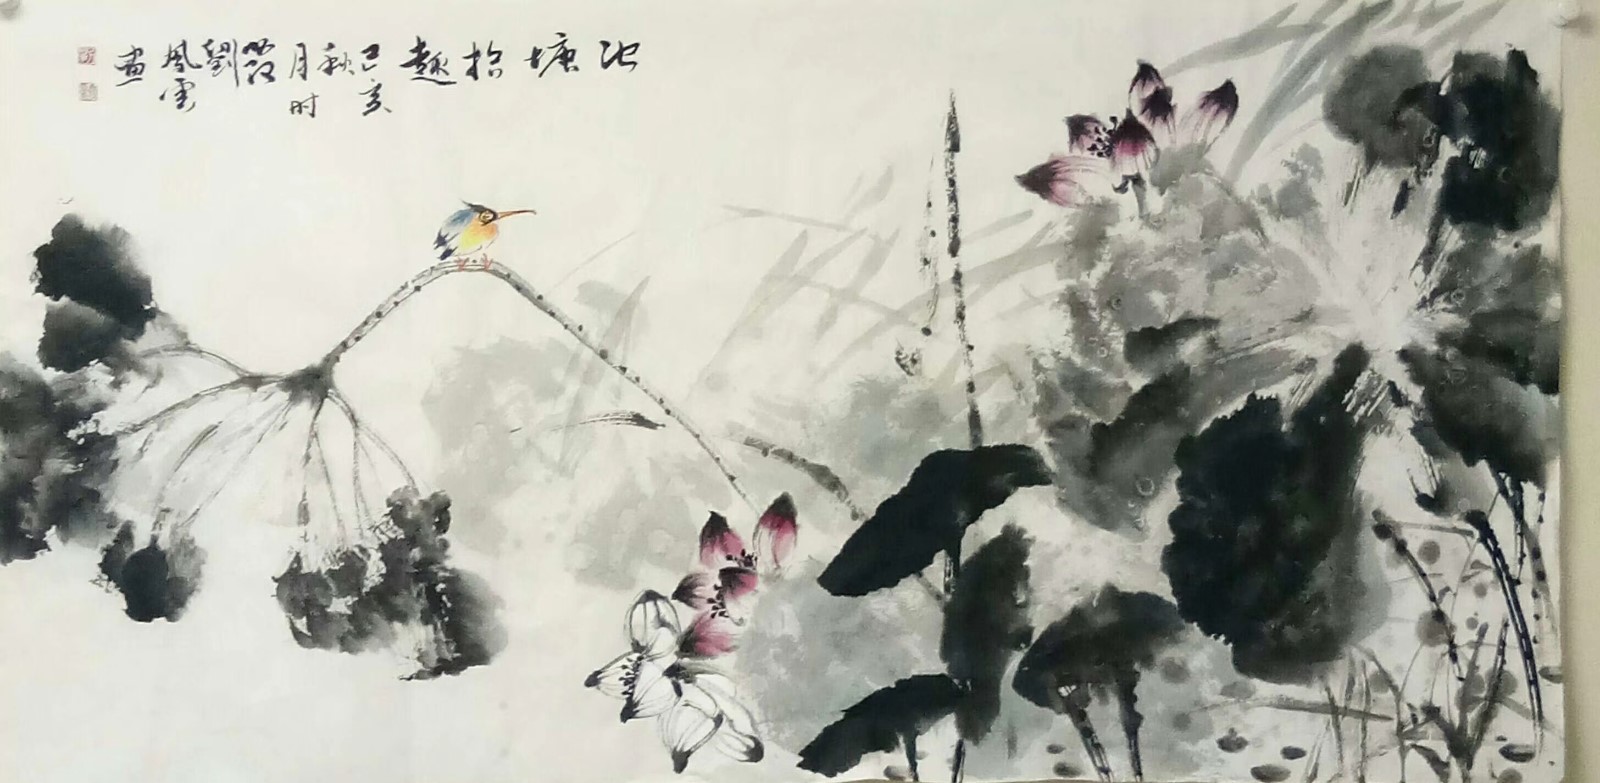 池塘拾趣
己亥
秋
月时
劉
風雲
畫